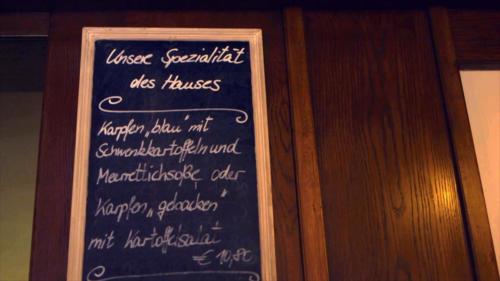 Unsere Spezialität
des Hauses
Karpfen „blau“ mit
Schwenkkartoffeln und
Meerrettichsoße oder
Karpfen „gebacken“
mit Kartoffelsalat
€ 10,80